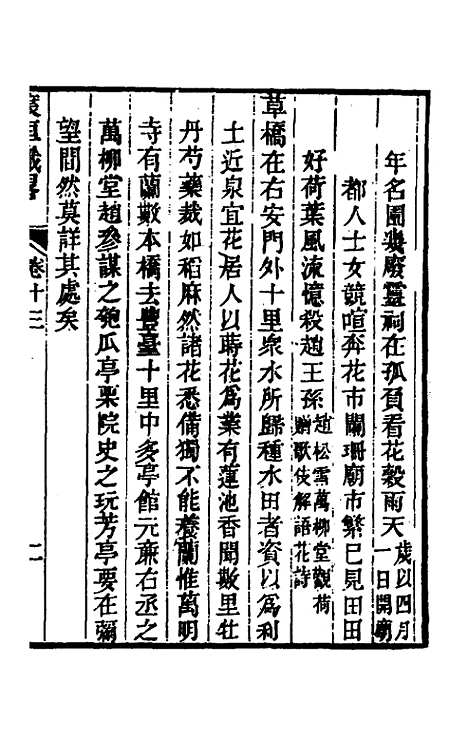 年名園幾廢靈祠在孤負看花穀雨天歲以四月一日開廟
都人士女競喧奔花市闌珊廟市繁已見田田
好荷葉風流憶殺趙王孫趙松雪萬柳堂觀荷贈歌伎解語花詩
草橋在右安門外十里衆水所歸種水田者資以爲利
土近泉宜花居人以蒔花爲業有蓮池香聞數里牡
丹芍藥栽如稻麻然諸花悉備獨不能養蘭惟萬明
寺有蘭數本橋去豐臺十里中多亭館元廉右丞之
萬柳堂趙參謀之匏瓜亭栗院史之玩芳亭要在彌
望間然莫詳其處矣
宸垣識畧
卷十三
二